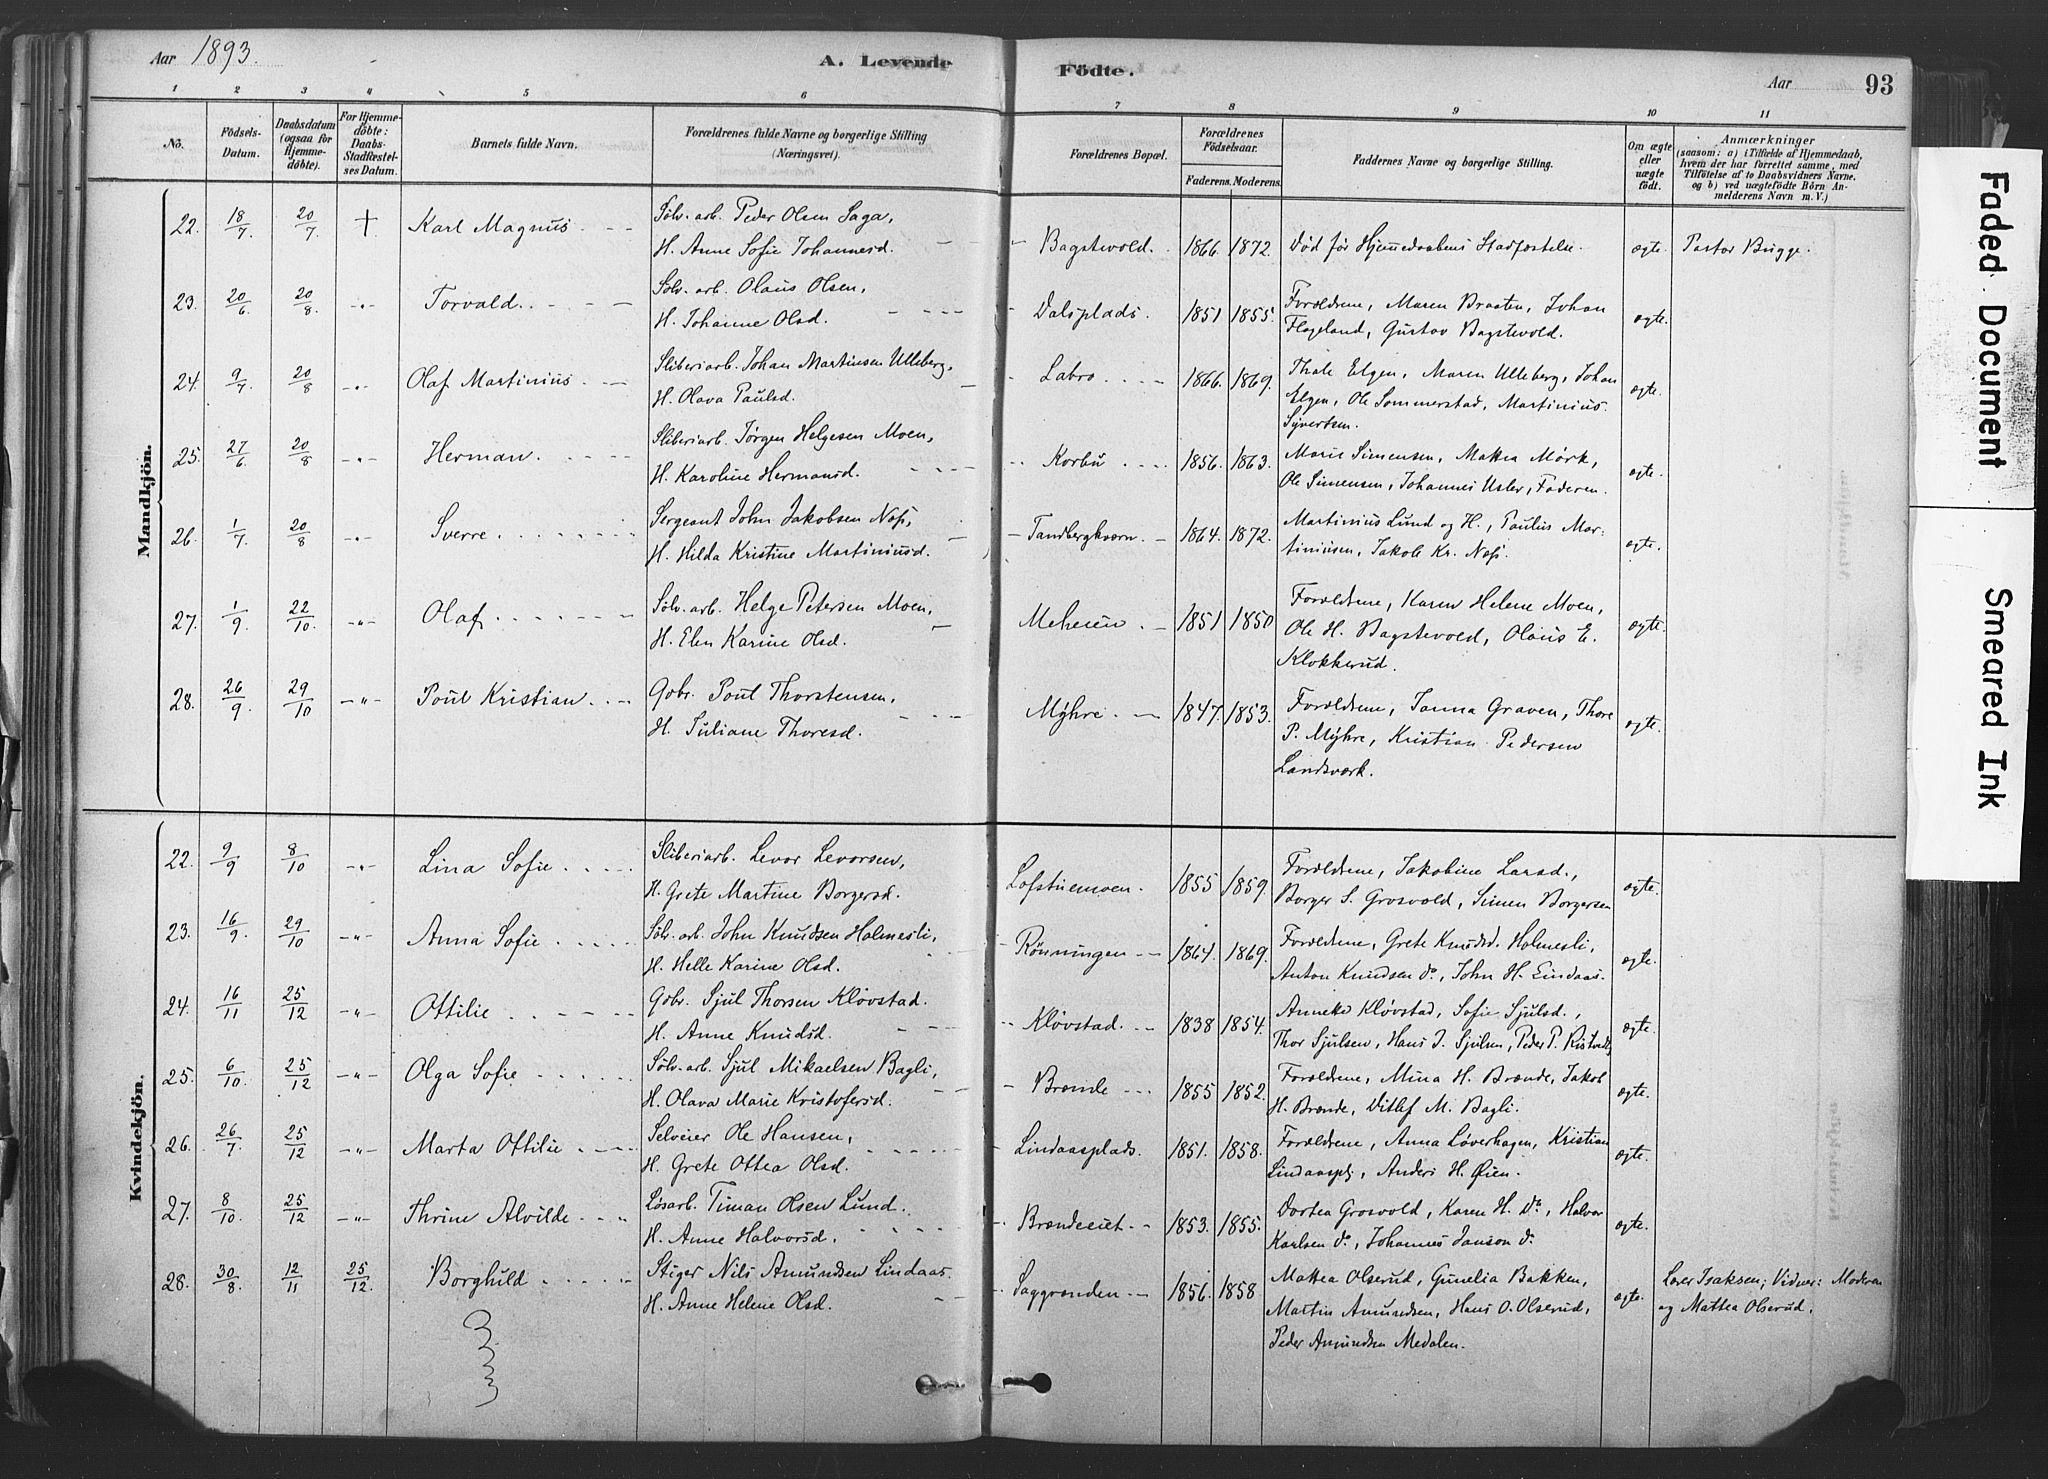 Aar 1893.
A. Levende Födte.
Aar 93
1 2 3 4 5 6 7 8 9 10 11
No.
Födsels-Datum.
Daabsdatum (ogsaa for Hjemmedöbte).
For Hjemmedöbte: Daabs-Stadfæstelses Datum.
Barnets fulde Navn.
Forældrenes fulde Navne og borgerlige Stilling (Næringsvei).
Forældrenes Bopæl.
Forældrenes Födselsaar.
Faderens. Moderens.
Faddernes Navne og borgerlige Stilling.
Om ægte eller uægte födt.
Anmærkninger
(saasom: a) i Tilfælde af Hjemmedaab, hvem der har forrettet samme, med Tilföielse af to Daabsvidners Navne. og b) ved uægtefödte Börn Anmelderens Navn m. V.)
Mandkjön.
22. 18/7 20/7 † Karl Magnus Sølv. arb. Peder Olsen Saga,
H. Anne Sofie Johannesd. Bagstevold. 1866. 1872. Død før Hjemmedaabens Stadfæstelse. ægte. Pastor Bugge.
23. 20/6 20/8 -"- Torvald. Sølv. arb. Olaus Olsen,
H. Johanne Olsd. Dalsplads. 1851 1855. Forældrene, Maren Braaten, Johan
Flogeland, Gustav Bagstevold. ægte.
24. 9/7 20/8 -"- Olaf Martinius Sliberiarb. Johan Martinsen Ulleberg,
H. Olava Paulsd. Labro 1866. 1869. Thale Elgen, Maren Ulleberg, Johan
Elgen, Ole Sommerstad, Martinius
Syvertsen. ægte.
25. 27/6 20/8 -"- Herman. Sliberiarb. Jørgen Helgesen Moen,
H. Karoline Hermansd. Korbu 1856. 1863. Marie Simensen, Mattea Mørk,
Ole Simensen, Johannes Usler, Faderen. ægte.
26. 1/7 20/8 -"- Sverre Sergeant John Jakobsen Næss,
H. Hilda Kristine Martiniusd. Tandbergkværn. 1864. 1872. Martinius Lund og H., Paulus Mar-
tiniusen, Jakob Kr. Næss. ægte.
27. 1/9 22/10. -"- Olaf Sølv. arb. Helge Petersen Moen,
H. Elen Karine Olsd. Meheien 1851 1850 Forældrene, Karen Helene Moen,
Ole H. Bagstevold, Olaus E.
Klokkerud. ægte.
28. 26/9 29/10 -"- Poul Kristian Gbr. Poul Thorstensen,
H. Juliane Thoresd. Myhre. 1847. 1853. Forældrene, Janna Graven, Thore
P. Myhre, Kristian Pedersen
Landsværk. ægte.
Kvindekjön.
22. 9/9 8/10 -"- Lina Sofie Sliberiarb. Levor Levorsen,
H. Grete Martine Borgersd. Lofstuemoen. 1855 1859. Forældrene, Jakobine Larsd.,
Borger S. Grosvold, Simen Borgersen ægte.
23. 16/9 29/10 -"- Anna Sofie Sølv. arb. John Knudsen Holmesli,
H. Helle Karine Olsd. Rönningen 1864. 1869. Forældrene, Grete Knudsd. Holmesli,
Anton Knudsen do, John H. Lindaas. ægte.
24. 16/11 25/12 -"- Ottilie Gbr. Sjul Thorsen Kløvstad.
H. Anne Knudsd. Kløvstad. 1838 1854. Anneke Kløvstad, Sofie Sjulsd.,
Thor Sjulsen, Hans J. Sjulsen, Peder P. ægte.
25. 6/10. 25/12 -"- Olga Sofie Sølv. arb. Sjul Mikaelsen Bagli,
H. Olava Marie Kristofersd. Brænde 1855 1852. Forældrene, Mina H. Brænde, Jakob
H. Brænde, Ditlef M. Bagli. ægte.
26. 26/7 25/12 -"- Marta Ottilie Selveier Ole Hansen,
H. Grete Ottea Olsd. Lindaasplads. 1851. 1858. Forældrene, Anna Løverhagen, Kristian
Lindaaspl, Anders H. Øien. ægte.
27. 8/10 25/12 -"- Thrine Alvilde Løsarb. Timan Olsen Lund.
H. Anne Halvorsd. Brændeeiet 1853. 1855. Dortea Grosvold, Karen H. do, Halvor
Karlsen do, Johannes Janson do. ægte.
28. 30/8 12/11 25/12. Borghild Stiger Nils Amundsen Lindaas.
H. Anne Helene Olsd. Saggrenden 1856. 1858 Mattea Olserud, Gunelia Bakken,
Martin Amundsen, Hans O. Olserud,
Peder Amundsen Medalen. ægte. Lærer Isaksen; Vidner: Moderen
og Mattea Olserud.
Faded Document
Smeared Ink